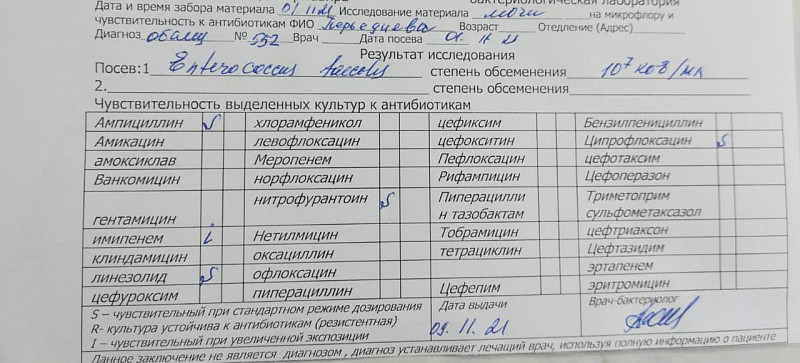 бактериологическая лаборатория
Дата и время забора материала 01/11 21 Исследование материала мочи на микрофлору и
чувствительность к антибиотикам ФИО Возраст Отделение (Адрес)
Диагноз № 552 Врач Дата посева 01. 11. 21
Результат исследования
Посев:1 Enterococcus faecalis степень обсеменения 10⁷ КОЕ/мл
2. степень обсеменения
Чувствительность выделенных культур к антибиотикам
Ампициллин S хлорамфеникол цефиксим Бензилпенициллин
Амикацин левофлоксацин цефокситин Ципрофлоксацин S
амоксиклав Меропенем Пефлоксацин цефотаксим
Ванкомицин норфлоксацин Рифампицин Цефоперазон
гентамицин нитрофурантоин S Пиперацилли Триметоприм
н тазобактам сульфометаксазол
имипенем i Нетилмицин Тобрамицин цефтриаксон
клиндамицин оксациллин тетрациклин Цефтазидим
линезолид S офлоксацин эртапенем
цефуроксим пиперациллин Цефепим эритромицин
S – чувствительный при стандартном режиме дозирования Дата выдачи Врач-бактериолог
R- культура устойчива к антибиотикам (резистентная) 09. 11. 21
I – чувствительный при увеличенной экспозиции
Данное заключение не является диагнозом , диагноз устанавливает лечащий врач, используя полную информацию о пациенте